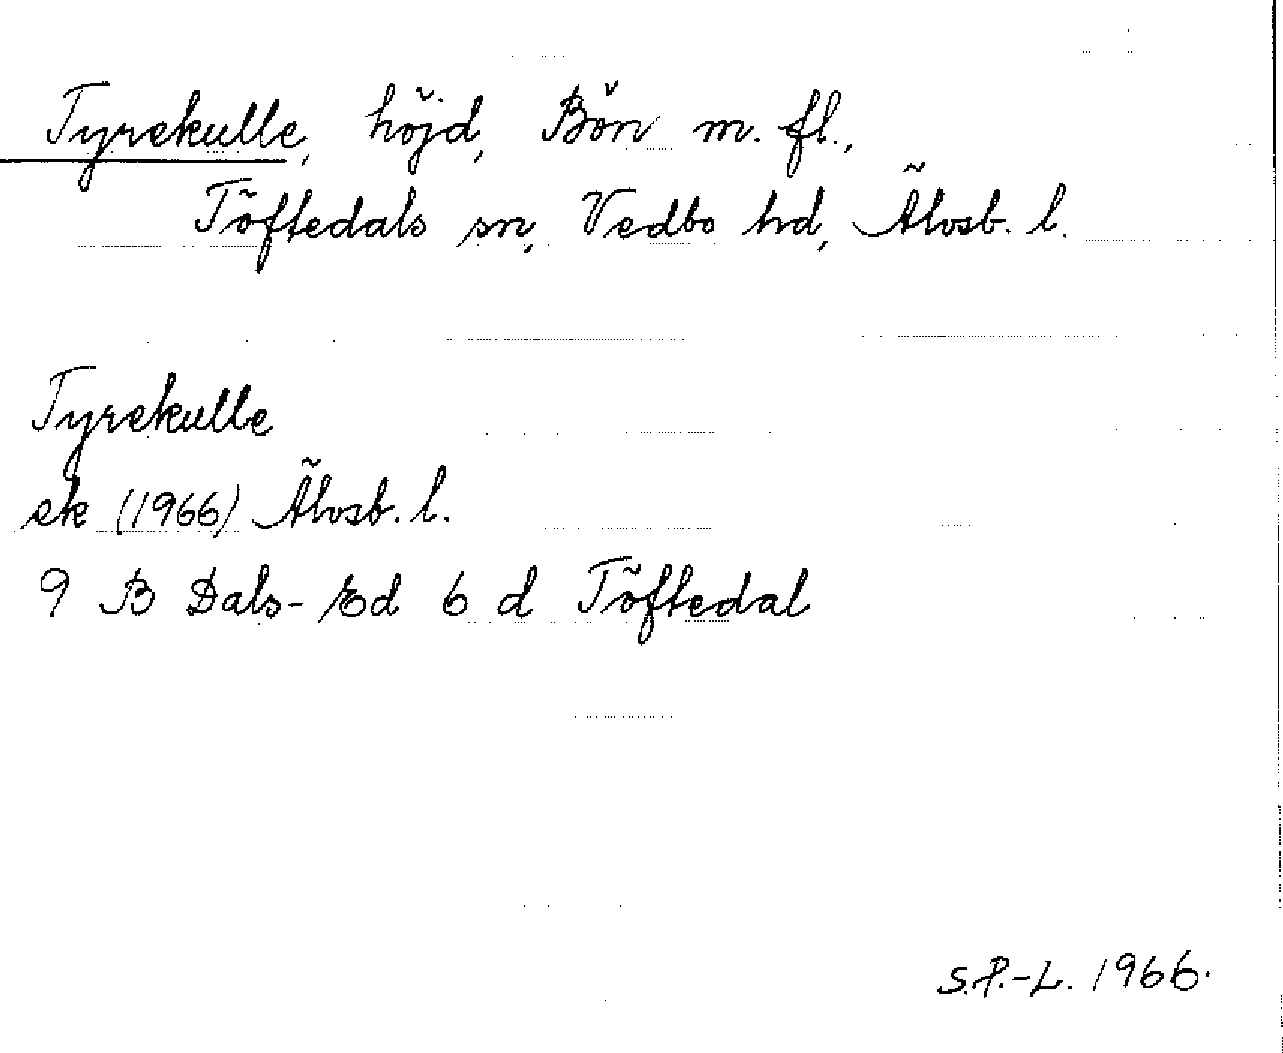 Tyrekulle, höjd, Bön m. fl.,
Töftedals sn, Vedbo hd, Älvsb. l.
Tyrekulle
ek (1966) Älvsb. l.
9 B Dals-Ed 6 d Töftedal
S.P.-L. 1966.